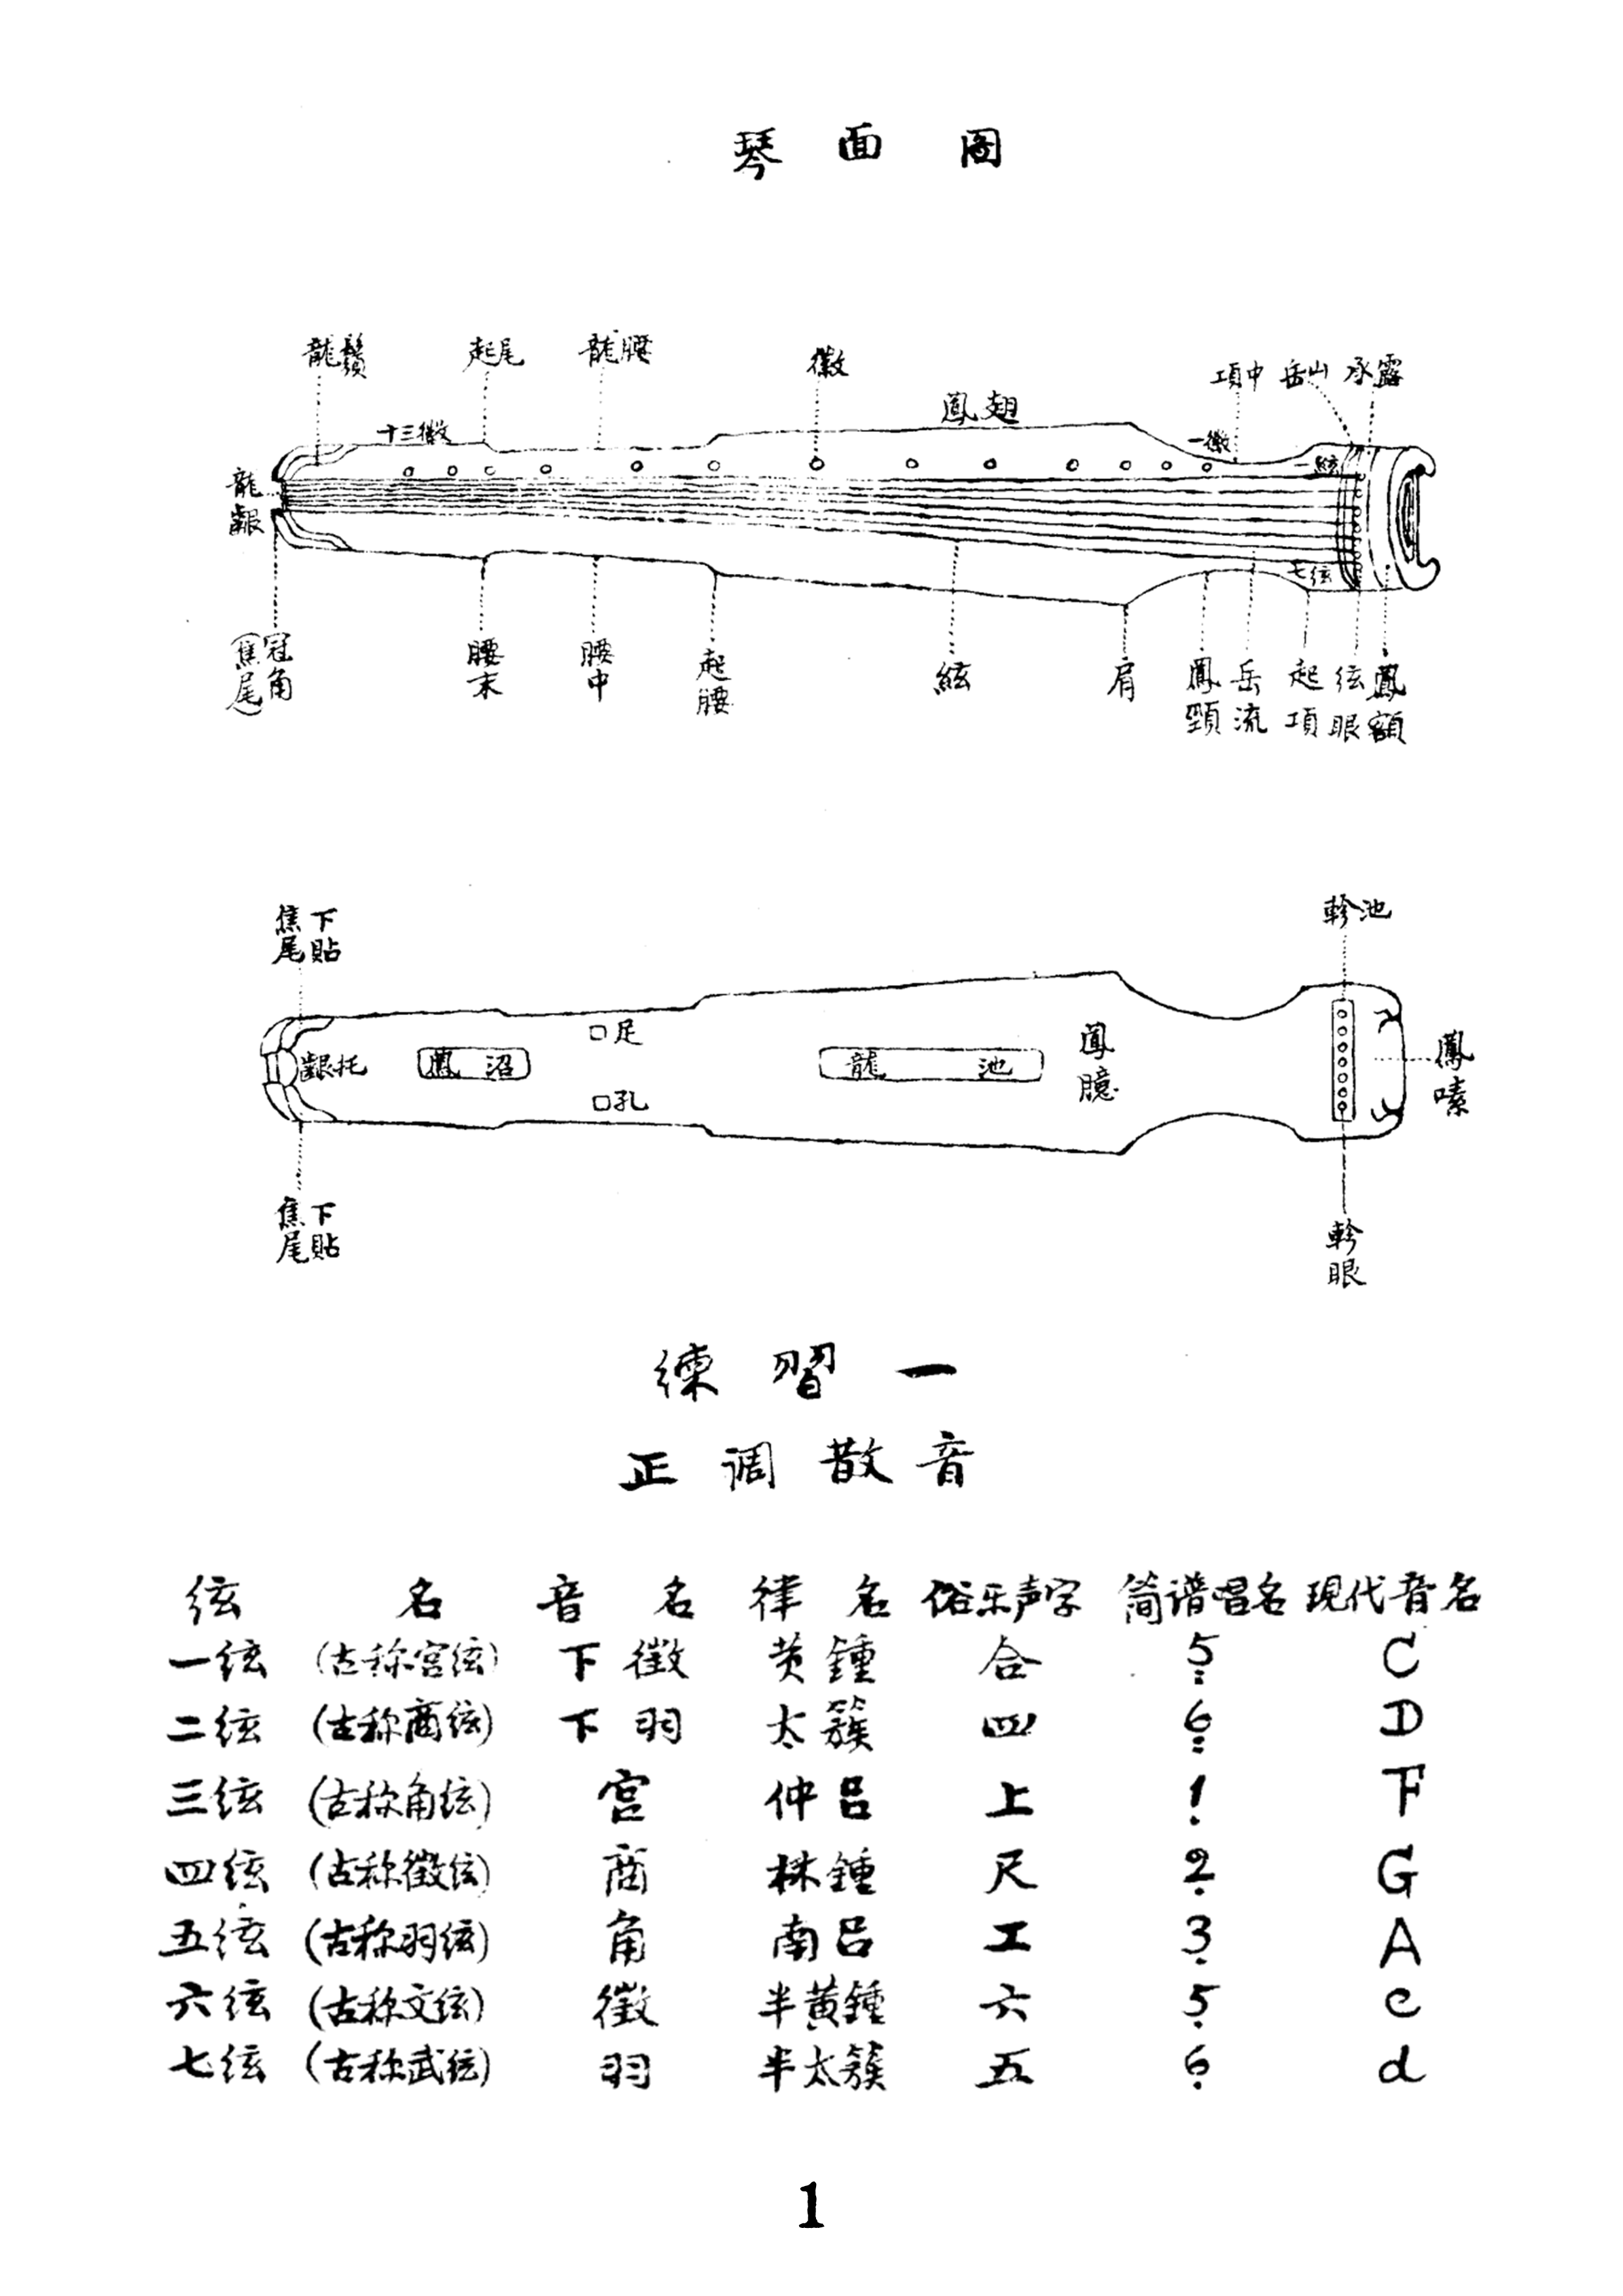 琴面圖
龍鬚
起尾
龍腰
徽
項中
岳山
承露
鳳翅
十三徽
一徽
一絃
龍齦
七弦
冠角
(焦尾)
腰末
腰中
起腰
絃
肩
鳳頸
岳流
起項
弦眼
鳳額
焦尾下貼
軫池
足
齦托
鳳沼
龍池
鳳臆
鳳嗉
孔
焦尾下貼
軫眼
練習一
正调散音
弦名 音名 律名 俗乐声字 简谱唱名 现代音名
一弦 (古称宫弦) 下徵 黄鍾 合 5̤ C
二弦 (古称商弦) 下羽 太簇 四 6̤ D
三弦 (古称角弦) 宫 仲吕 上 1̣ F
四弦 (古称徵弦) 商 林鍾 尺 2̣ G
五弦 (古称羽弦) 角 南吕 工 3̣ A
六弦 (古称文弦) 徵 半黄鍾 六 5̣ c
七弦 (古称武弦) 羽 半太簇 五 6̣ d
1